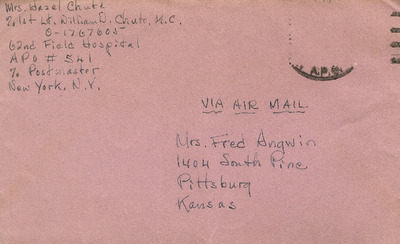 Mrs. Hazel Chute
% 1st Lt. William D. Chute, M.C.
O-1767605
62nd Field Hospital
APO # 541
% Postmaster
New York, N.Y.
A.P.O.
VIA AIR MAIL
Mrs. Fred Angwin
1404 South Pine
Pittsburg
Kansas